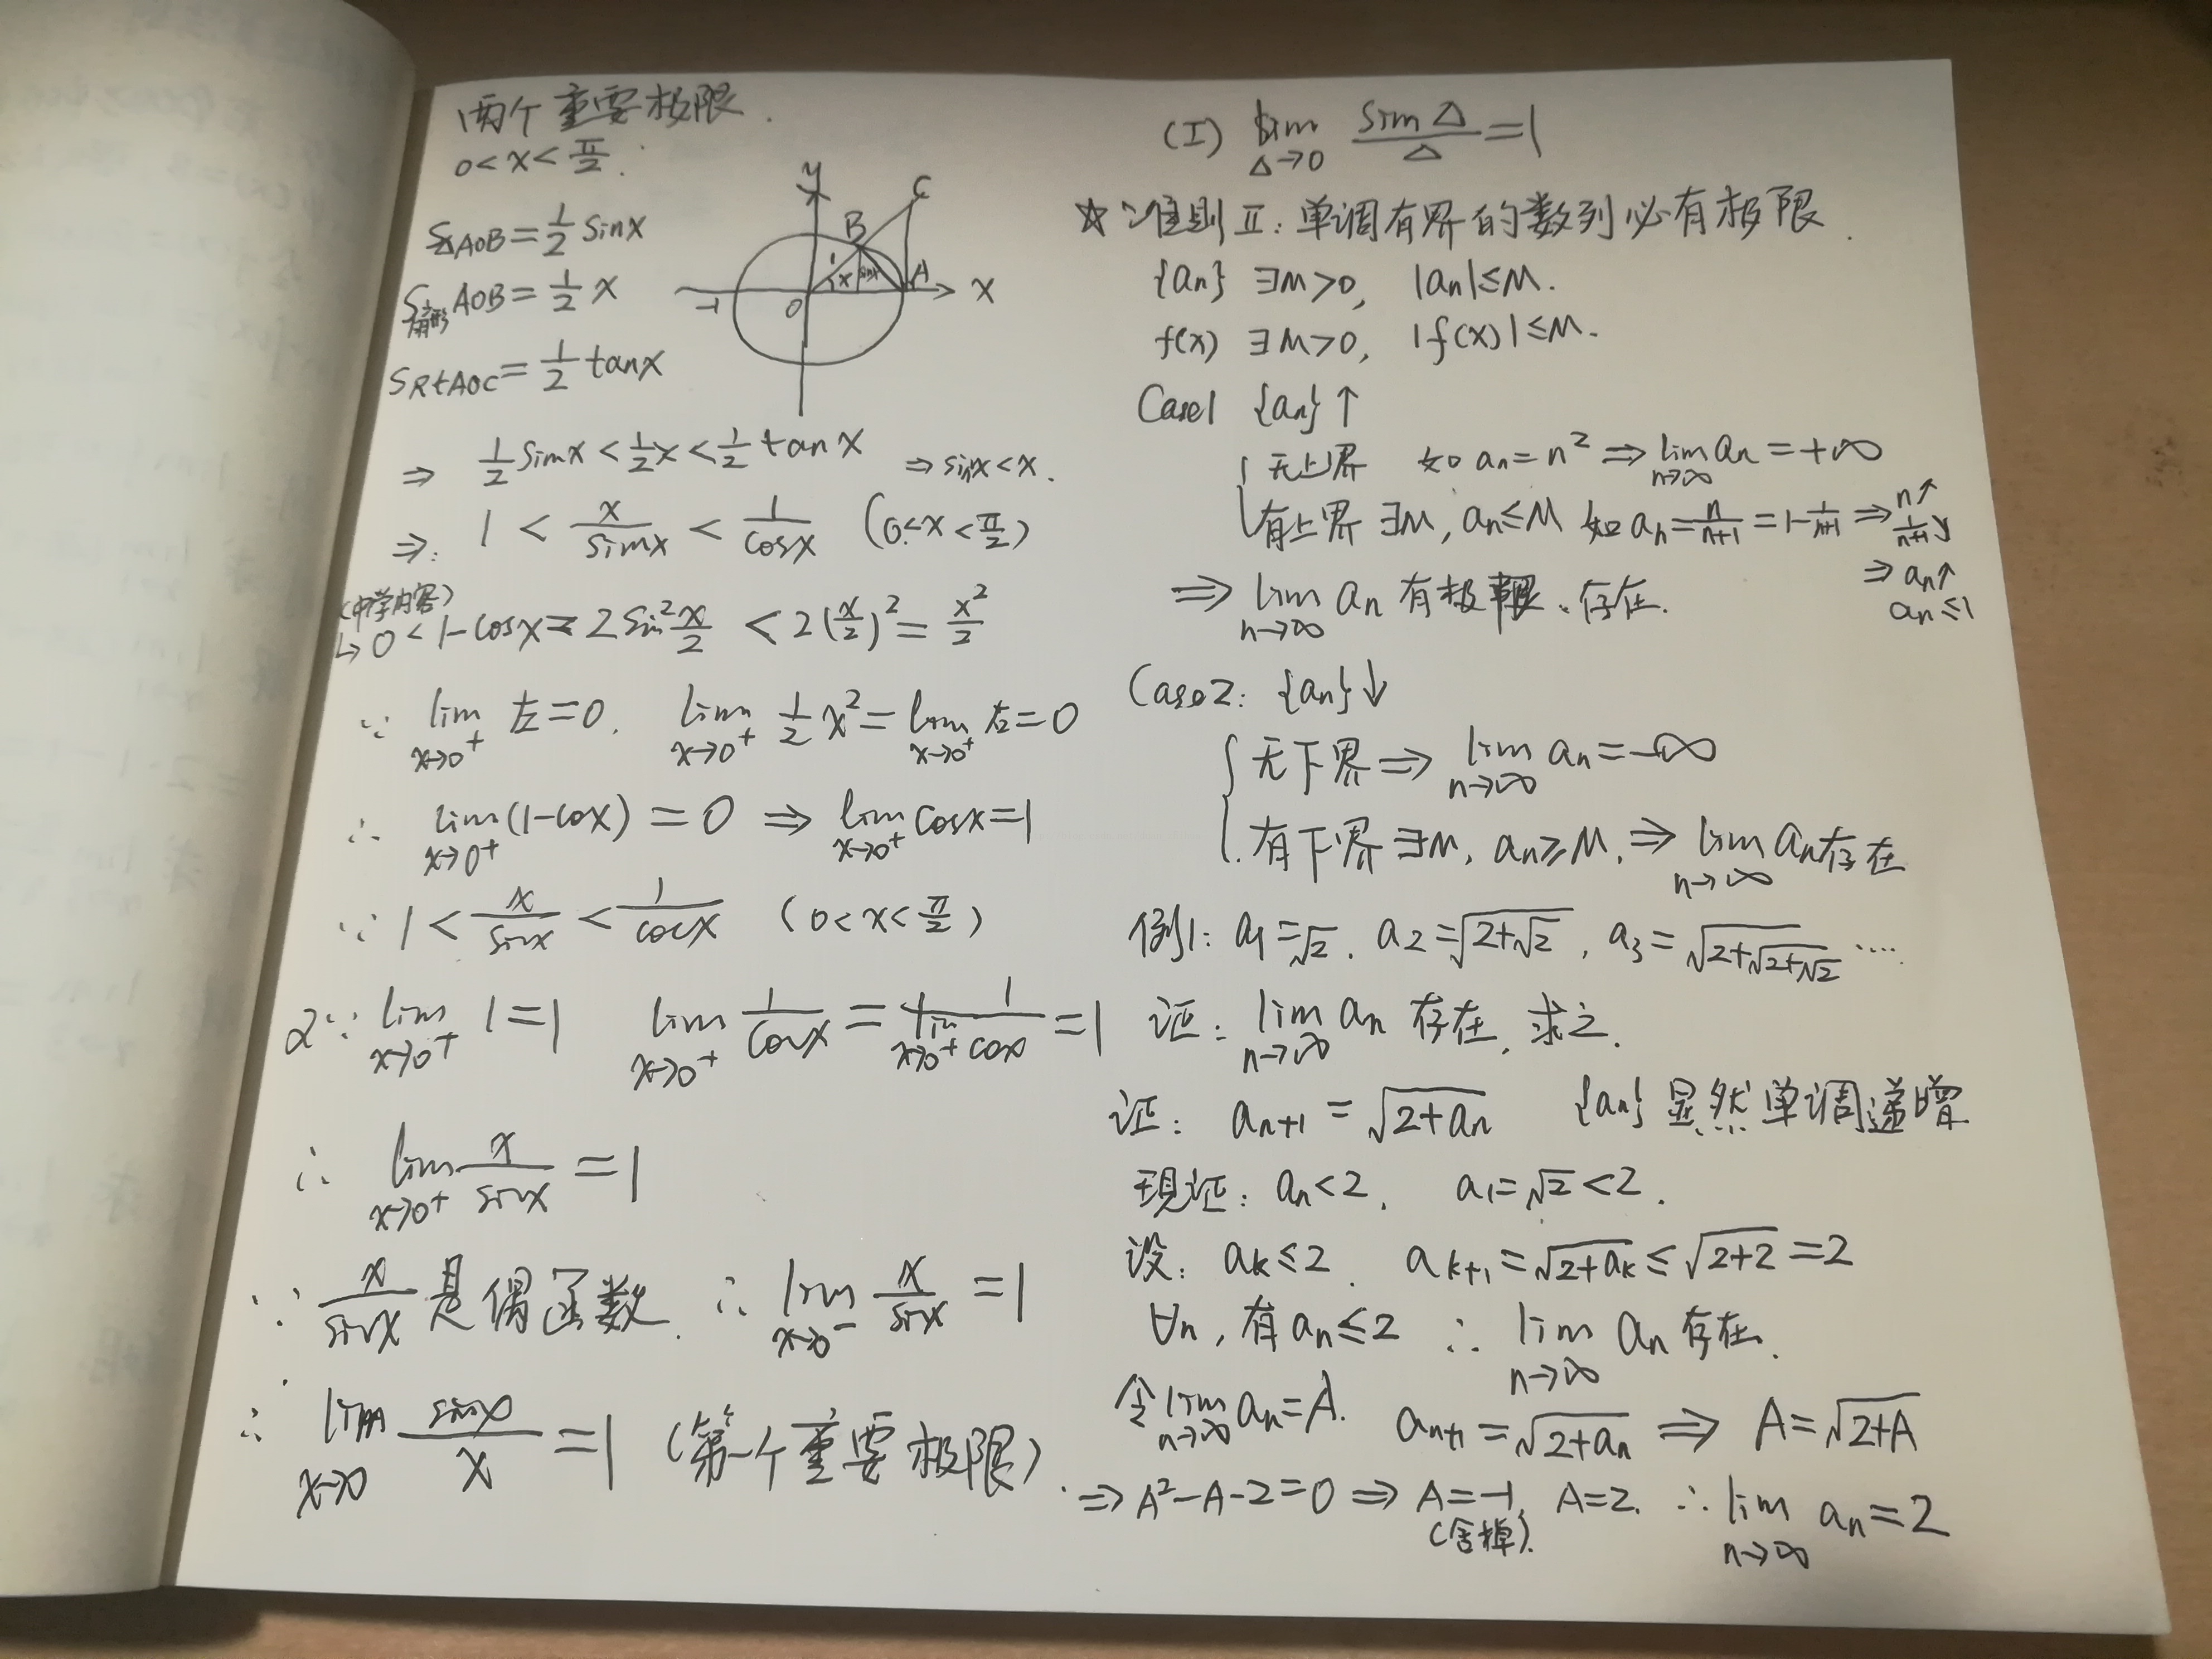 两个重要极限.
0<x<π/2.
S△AOB=1/2 sinx
S扇形AOB=1/2 x
SRtAOC=1/2 tanx
y
C
B
1
x
sinx
A
-1
O
X
⇒ 1/2 sinx<1/2 x<1/2 tanx ⇒sinx<x.
⇒: 1<x/sinx<1/cosx (0<x<π/2)
(中学内容)
↳0<1-cosx=2sin²x/2 <2(x/2)²=x²/2
∵ lim x→0⁺ 左=0. lim x→0⁺ 1/2 x²=lim x→0⁺ 右=0
∴ lim x→0⁺ (1-cosx)=0 ⇒ lim x→0⁺ cosx=1
∵ 1<x/sinx<1/cosx (0<x<π/2)
又∵ lim x→0⁺ 1=1 lim x→0⁺ 1/cosx=1/lim x→0⁺ cosx=1
∴ lim x→0⁺ x/sinx=1
∵ x/sinx是偶函数. ∴ lim x→0⁻ x/sinx=1
∴ lim x→0 sinx/x=1 (第一个重要极限).
(I) lim Δ→0 sinΔ/Δ=1
☆准则Ⅱ:单调有界的数列必有极限.
{an} ∃M>0, |an|≤M.
f(x) ∃M>0, |f(x)|≤M.
Case1 {an}↑
无上界 如an=n²⇒lim n→∞ an=+∞
有上界∃M,an≤M 如an=n/n+1=1-1/n+1⇒n↑ 1/n+1↘
⇒an↑
an≤1
⇒lim n→∞ an有极限、存在.
Case2: {an}↓
无下界⇒lim n→∞ an=-∞
有下界∃M, an≥M.⇒lim n→∞ an存在
例1: a1=√2. a2=√2+√2, a3=√2+√2+√2 ····
证: lim n→∞ an 存在, 求之.
证: an+1=√2+an {an}显然单调递增
现证: an<2. a1=√2<2.
设: ak≤2. ak+1=√2+ak≤√2+2=2
∀n,有an≤2 ∴ lim n→∞ an存在.
令lim n→∞ an=A. an+1=√2+an⇒A=√2+A
⇒A²-A-2=0⇒A=-1, A=2. ∴lim n→∞ an=2
(舍掉).